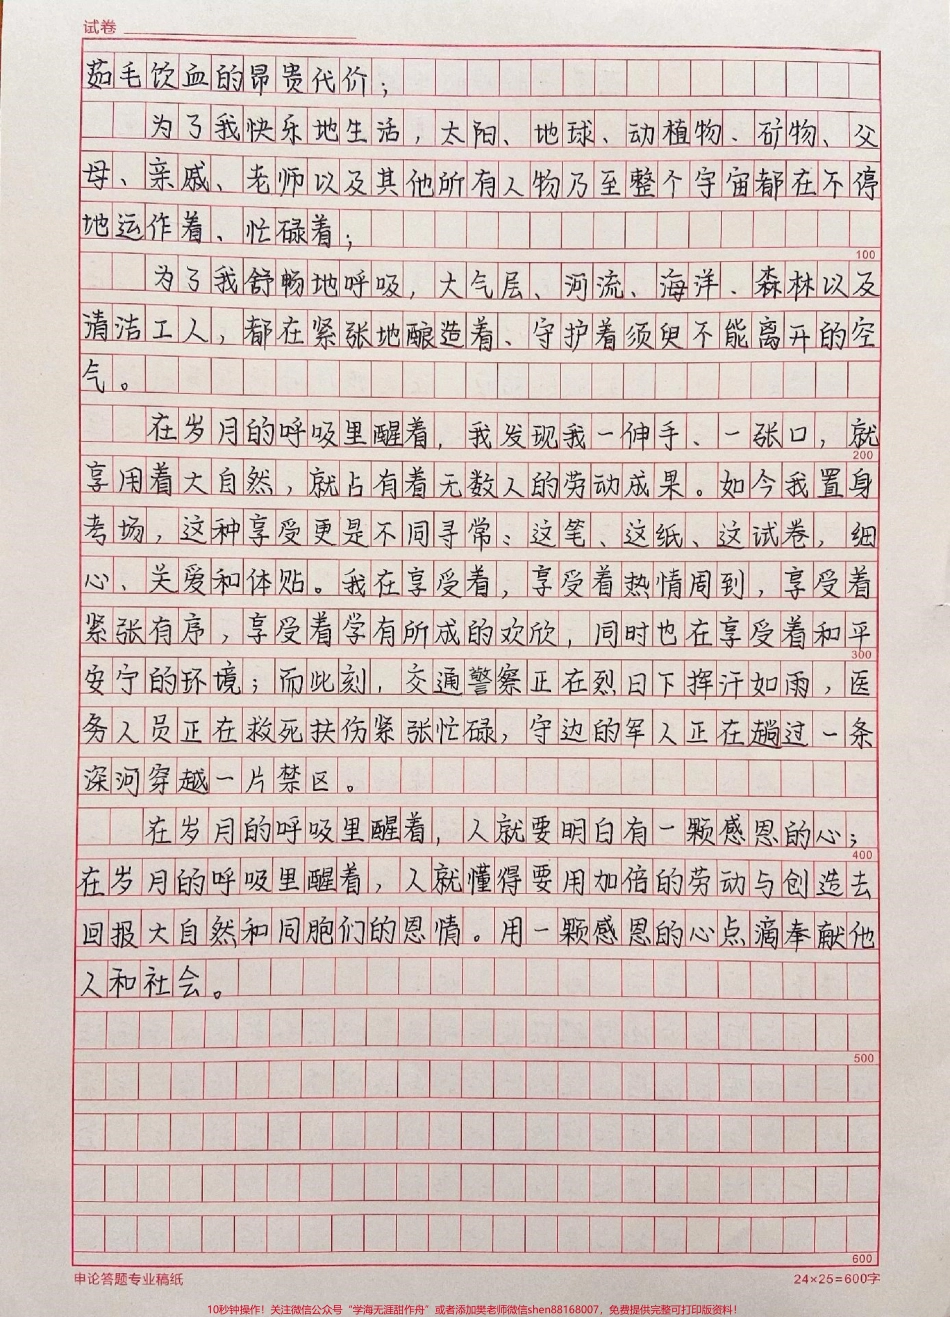 试卷
茹毛饮血的昂贵代价；
为了我快乐地生活，太阳、地球、动植物、矿物、父
母、亲戚、老师以及其他所有人物乃至整个宇宙都在不停
地运作着、忙碌着；
100
为了我舒畅地呼吸，大气层、河流、海洋、森林以及
清洁工人，都在紧张地酿造着、守护着须臾不能离开的空
气。
在岁月的呼吸里醒着，我发现我一伸手、一张口，就
200
享用着大自然，就占有着无数人的劳动成果。如今我置身
考场，这种享受更是不同寻常：这笔、这纸、这试卷，细
心、关爱和体贴。我在享受着，享受着热情周到，享受着
紧张有序，享受着学有所成的欢欣，同时也在享受着和平
300
安宁的环境；而此刻，交通警察正在烈日下挥汗如雨，医
务人员正在救死扶伤紧张忙碌，守边的军人正在趟过一条
深河穿越一片禁区。
在岁月的呼吸里醒着，人就要明白有一颗感恩的心；
400
在岁月的呼吸里醒着，人就懂得要用加倍的劳动与创造去
回报大自然和同胞们的恩情。用一颗感恩的心点滴奉献他
人和社会。
500
600
申论答题专业稿纸
24×25=600字
10秒钟操作！关注微信公众号“学海无涯甜作舟”或者添加樊老师微信shen88168007，免费提供完整可打印版资料！